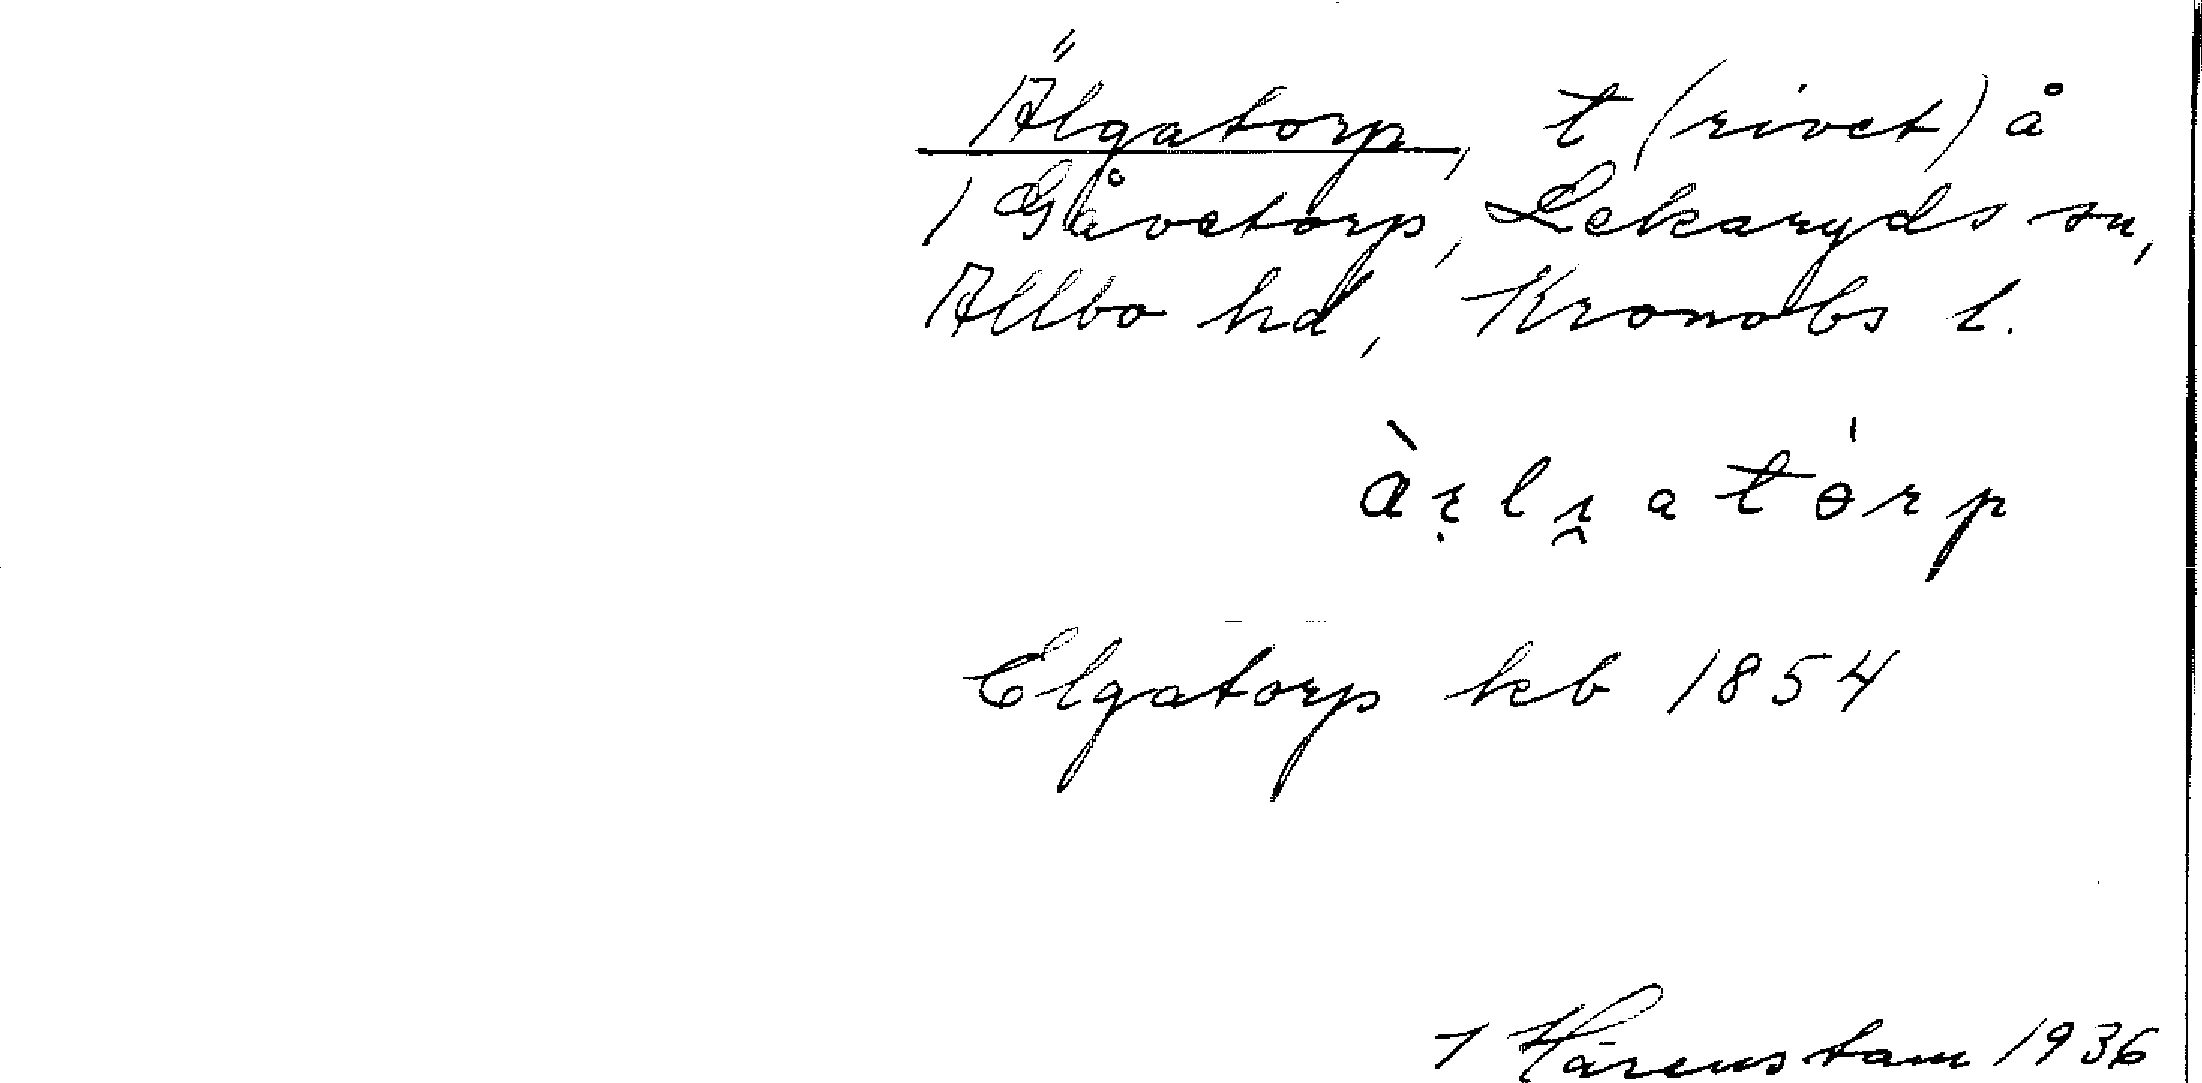 Älgatorp, t (rivet) å
1 Gåvetorp, Lekaryds sn,
Allbo hd, Kronobs l.
Elgatorp kb 1854
Hårenstam 1936